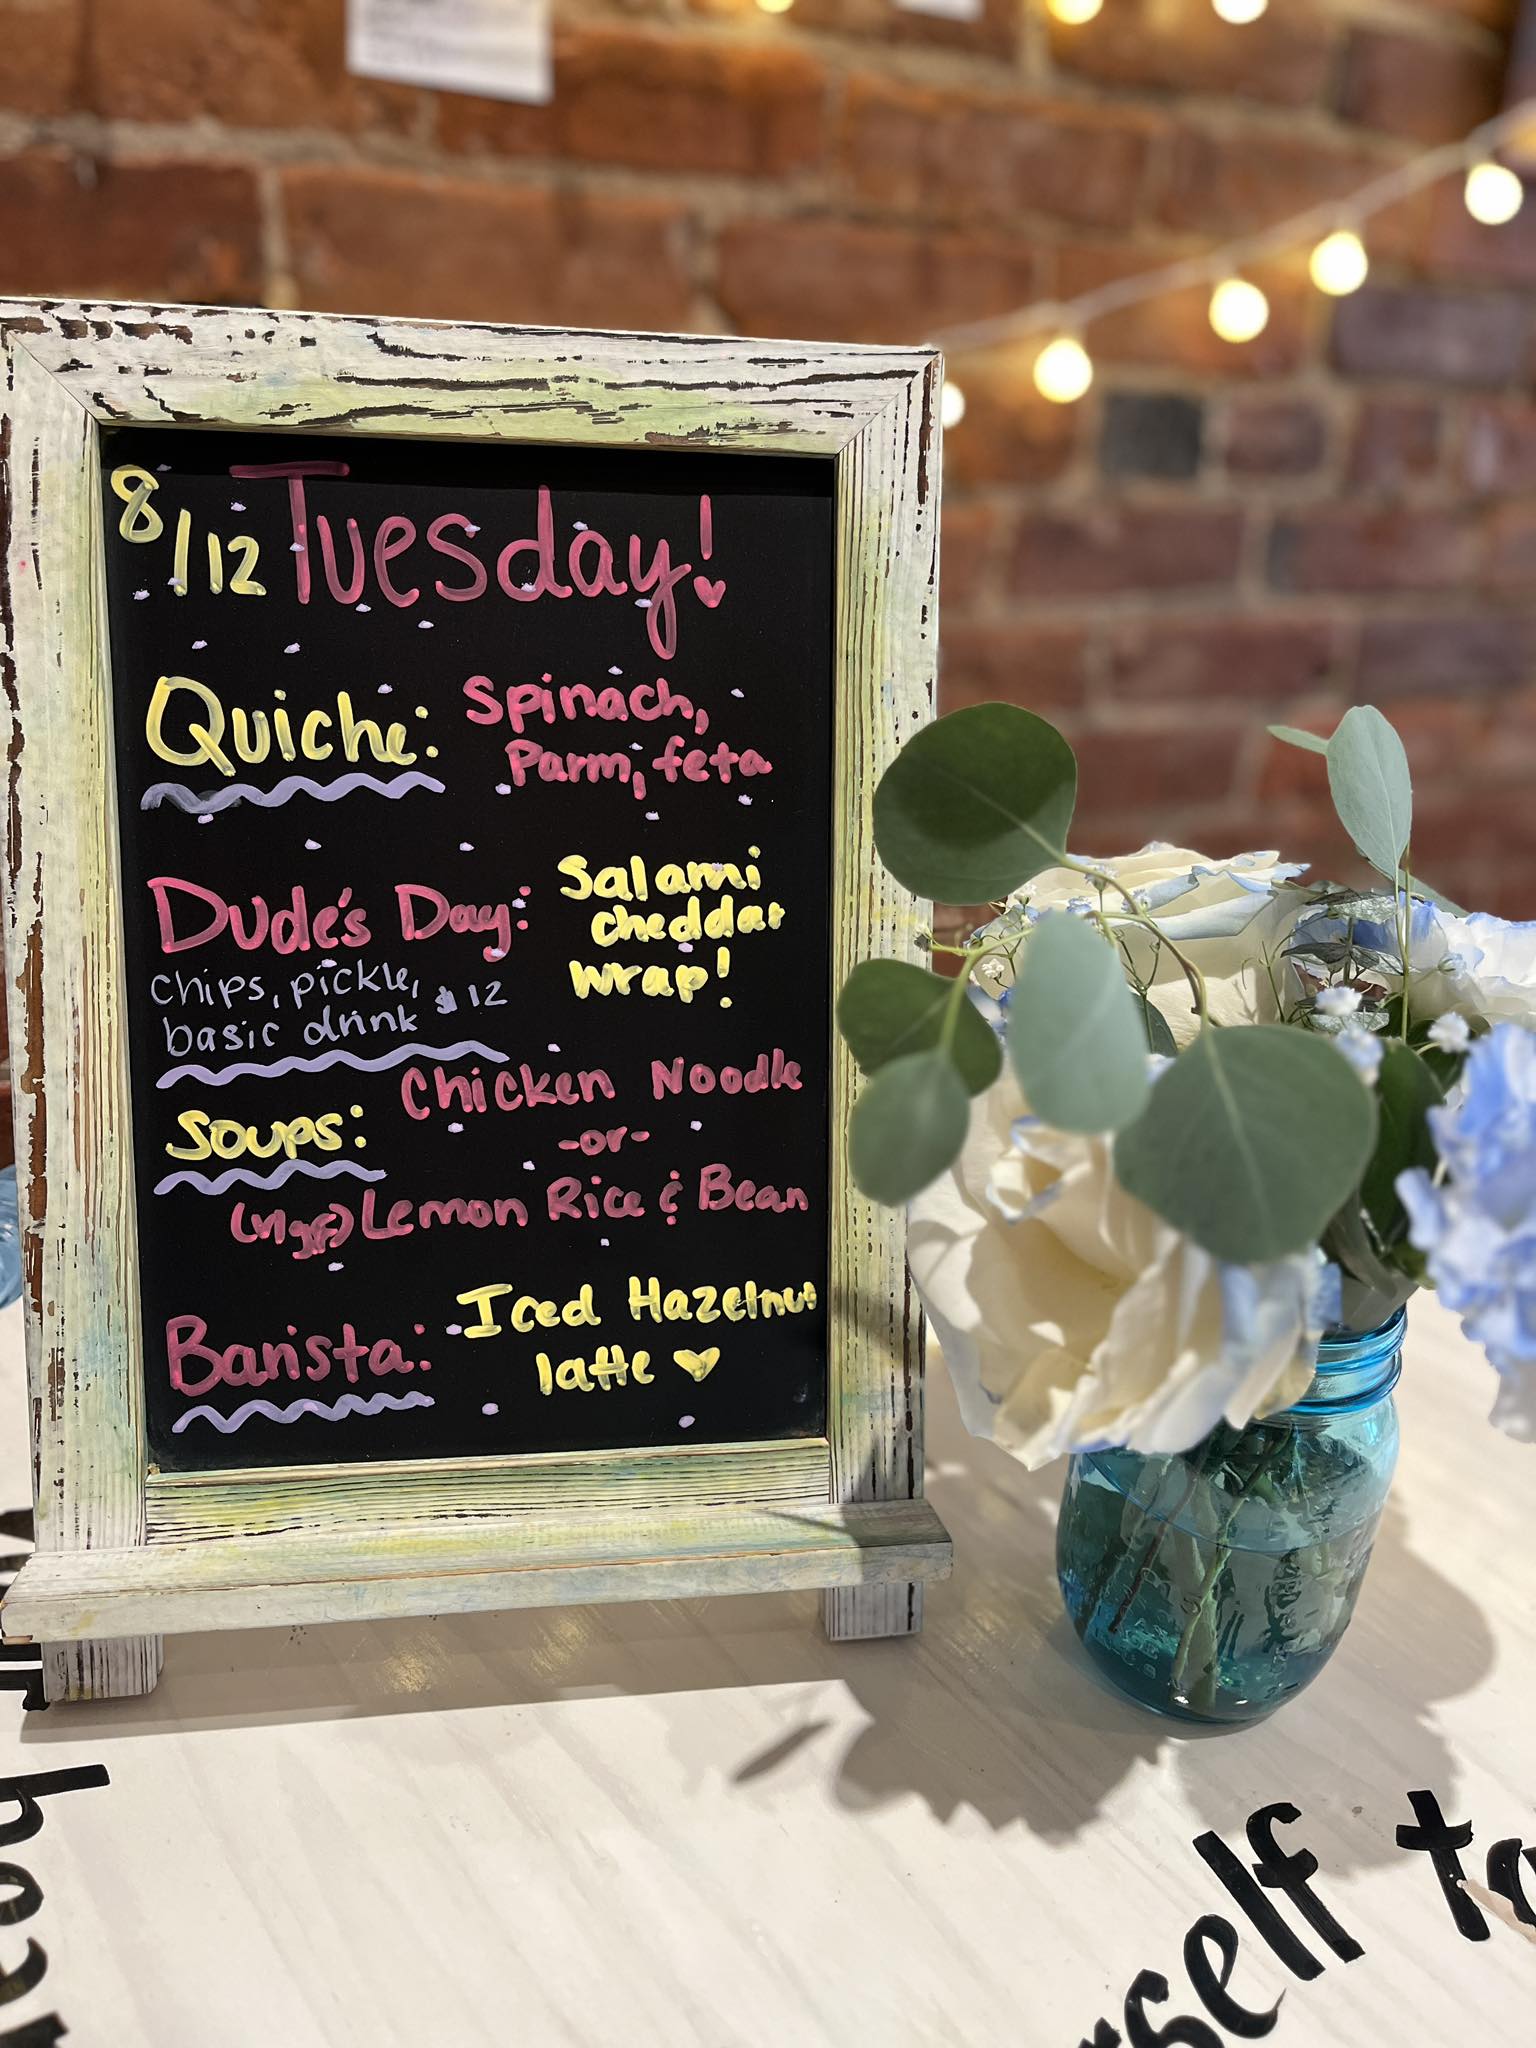 8/12 Tuesday!
Quiche: Spinach,
Parm, feta
Dude's Day: Salami
cheddar
wrap!
chips, pickle,
basic drink $12
Soups: Chicken Noodle
-or-
(v,gf) Lemon Rice & Bean
Barista: Iced Hazelnut
latte